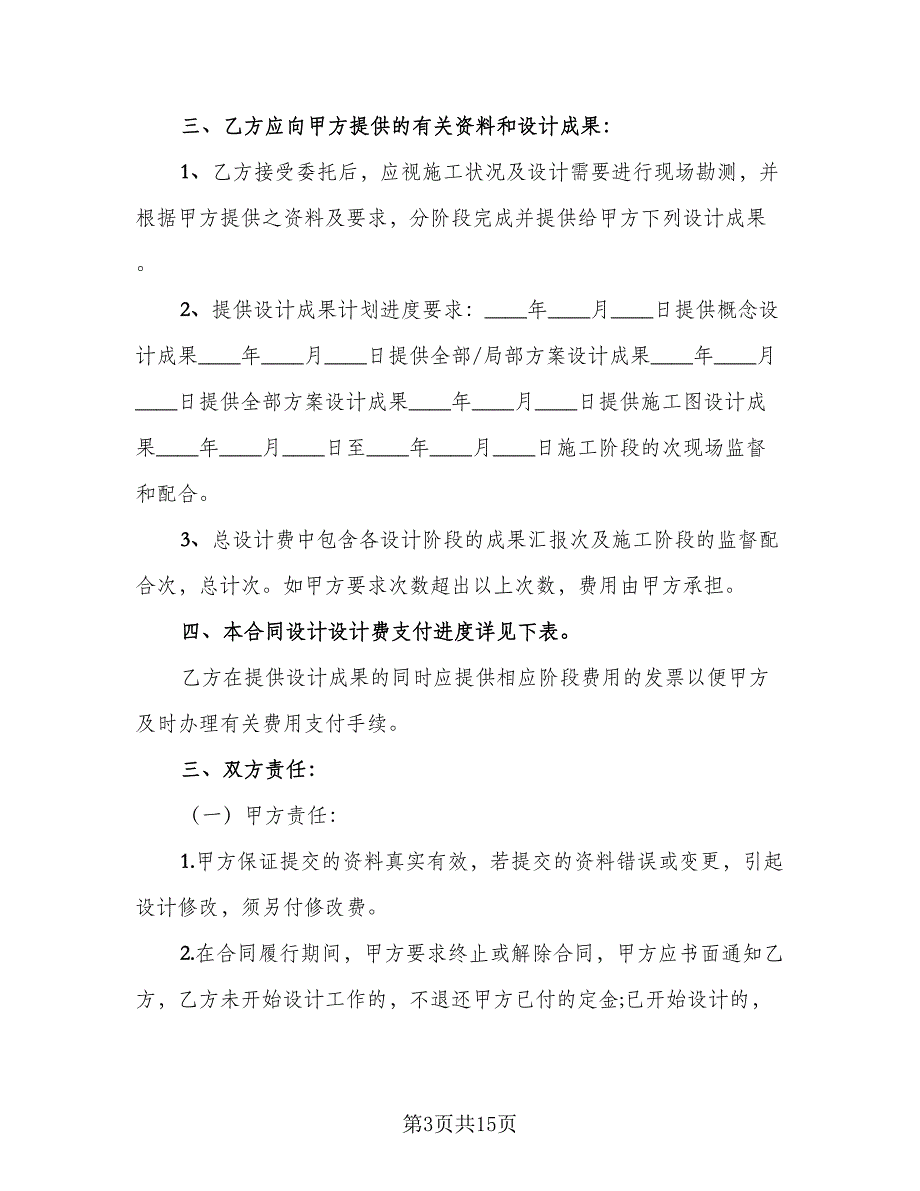 三、乙方应向甲方提供的有关资料和设计成果：
1、乙方接受委托后，应视施工状况及设计需要进行现场勘测，并
根据甲方提供之资料及要求，分阶段完成并提供给甲方下列设计成果
。
2、提供设计成果计划进度要求：____年____月____日提供概念设
计成果____年____月____日提供全部/局部方案设计成果____年____月
____日提供全部方案设计成果____年____月____日提供施工图设计成
果____年____月____日至____年____月____日施工阶段的次现场监督
和配合。
3、总设计费中包含各设计阶段的成果汇报次及施工阶段的监督配
合次，总计次。如甲方要求次数超出以上次数，费用由甲方承担。
四、本合同设计设计费支付进度详见下表。
乙方在提供设计成果的同时应提供相应阶段费用的发票以便甲方
及时办理有关费用支付手续。
三、双方责任：
（一）甲方责任：
1.甲方保证提交的资料真实有效，若提交的资料错误或变更，引起
设计修改，须另付修改费。
2.在合同履行期间，甲方要求终止或解除合同，甲方应书面通知乙
方，乙方未开始设计工作的，不退还甲方已付的定金;已开始设计的，
第3页共15页